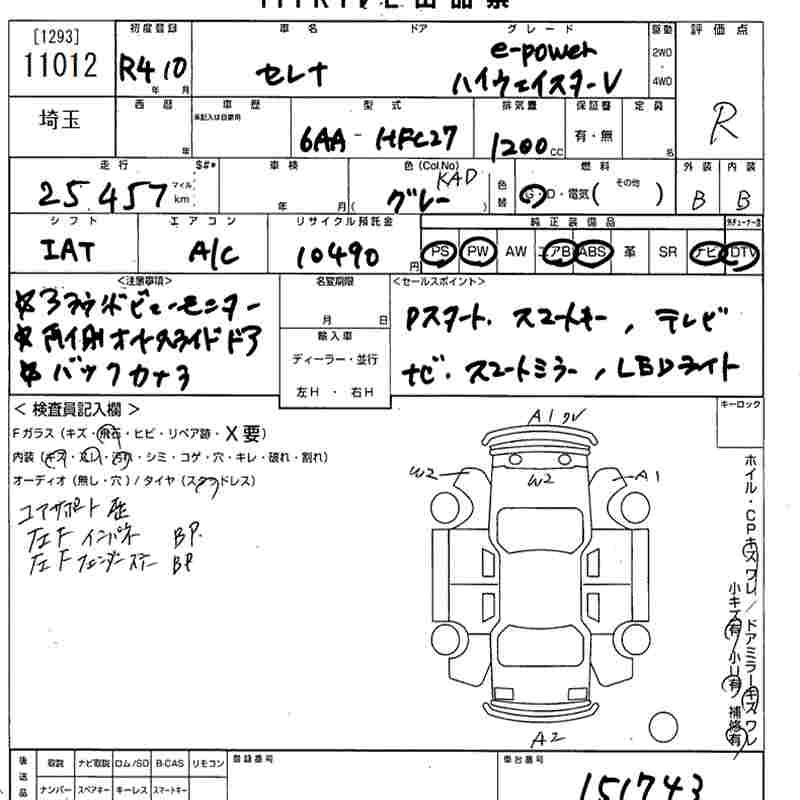 [1293]
11012
初度登録
R4 10
年 月
車名
セレナ
ドア
グレード
e-power
ハイウェイスターV
駆動
2WD
・
4WD
評価点
R
埼玉
西暦
年
車歴
未記入は自家用
型式
6AA - HFC27
排気量
1200 CC
保証書
有・無
定員
名
走行
25,457
マイル
km
$#*
車検
年 月
色(Col No)
KAD
グレー
色替
燃料
G・D・電気( その他 )
外装
B
内装
B
シフト
IAT
エアコン
A/C
リサイクル預託金
10490 円
純正装備品
PS PW AW エアB ABS 革 SR ナビ DTV
<注意事項>
☆アラウンドビューモニター
☆両側オートスライドドア
☆バックカメラ
名変期限
月 日
輸入車
ディーラー・並行
左H ・ 右H
<セールスポイント>
Pスタート、スマートキー、テレビ
ナビ、スマートミラー、LEDライト
キーロック
<検査員記入欄>
Fガラス(キズ・飛石・ヒビ・リペア跡・X要)
内装(キズ・スレ・汚れ・シミ・コゲ・穴・キレ・破れ・割れ)
オーディオ(無し・穴)/タイヤ(スタッドレス)
コアサポート 歪
左F インパネ BP.
左F フェンダーステー BP
A1 gV
W2
W2
A1
A2
ホイル・CPキズワレ/ドアミラーキズワレ
小キズ有/小U有/補修有
後送品
取説 ナビ取説 ロム/SD B-CAS リモコン
ナンバー スペアキー キーレス スマートキー
登録番号
車台番号
151743